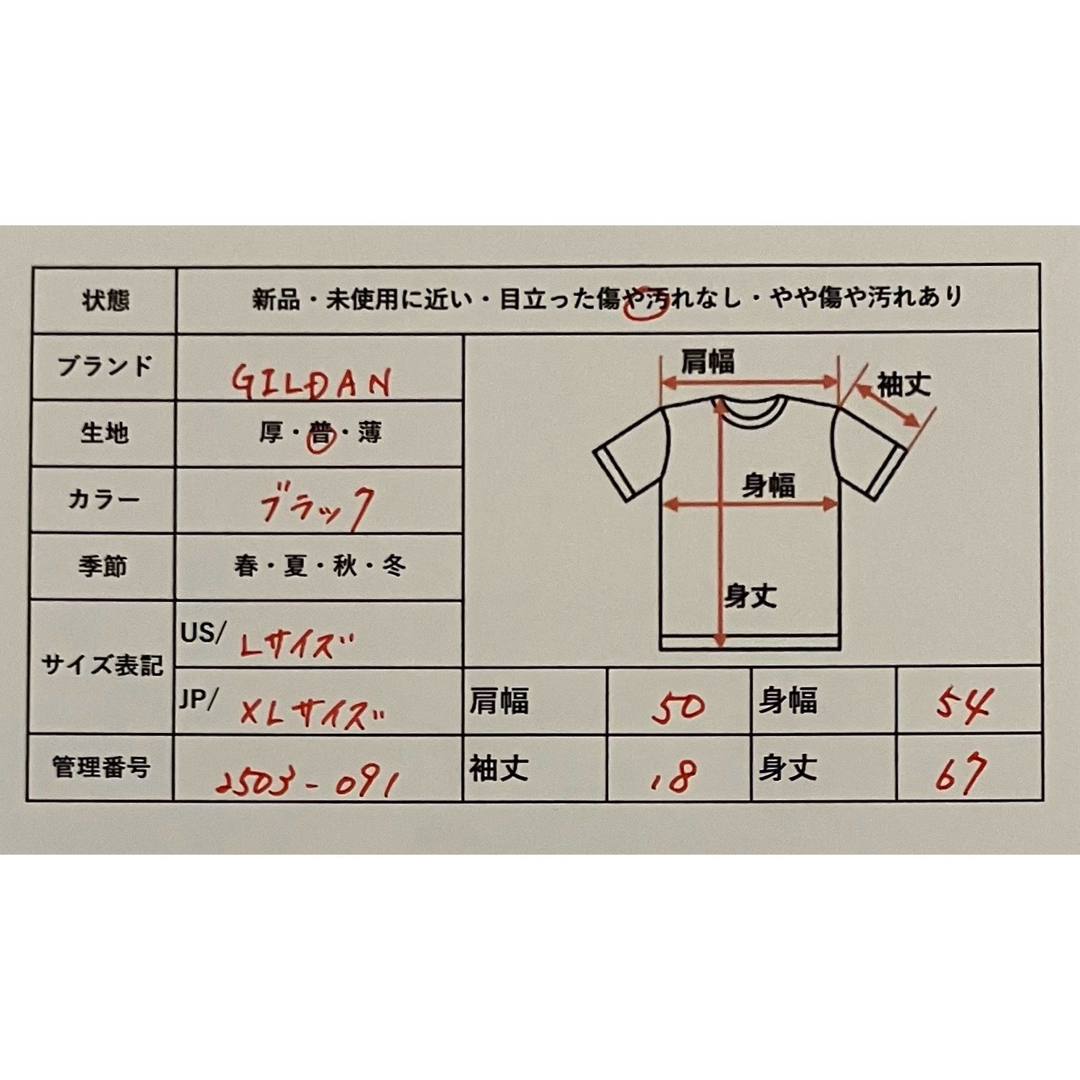 状態 新品・未使用に近い・目立った傷や汚れなし・やや傷や汚れあり
ブランド GILDAN
生地 厚・普・薄
カラー ブラック
季節 春・夏・秋・冬
サイズ表記 US/ Lサイズ
JP/ XLサイズ
管理番号 2503-091
肩幅
袖丈
身幅
身丈
肩幅 50 身幅 54
袖丈 18 身丈 67